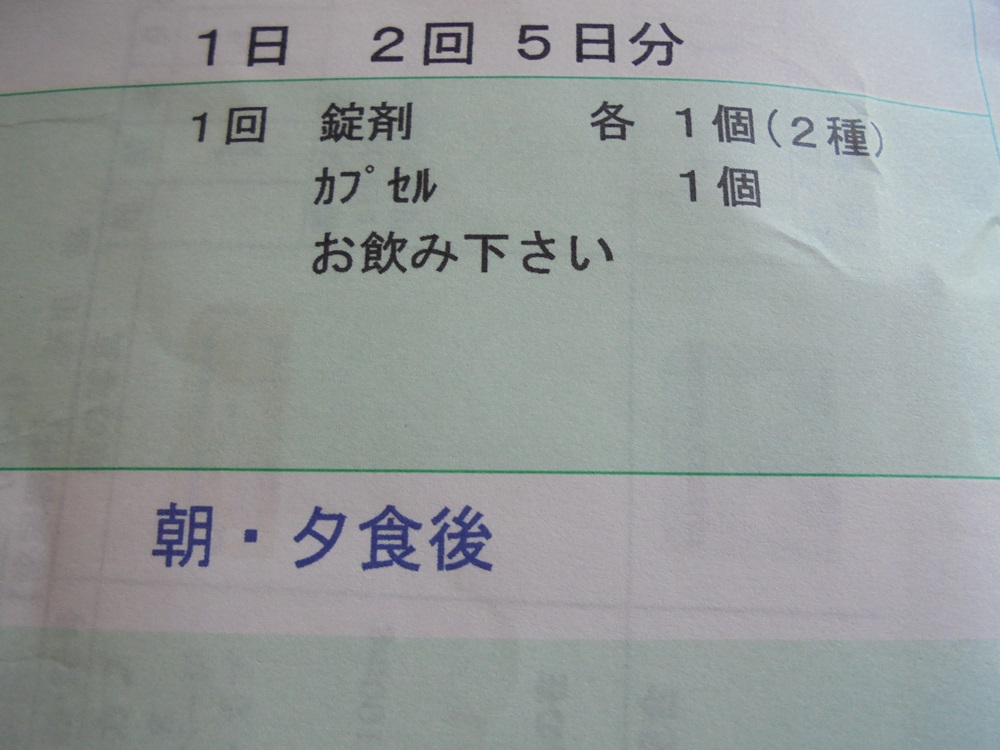 1日 2回 5日分
1回 錠剤 各 1個(2種)
ｶﾌﾟｾﾙ 1個
お飲み下さい
朝・夕食後